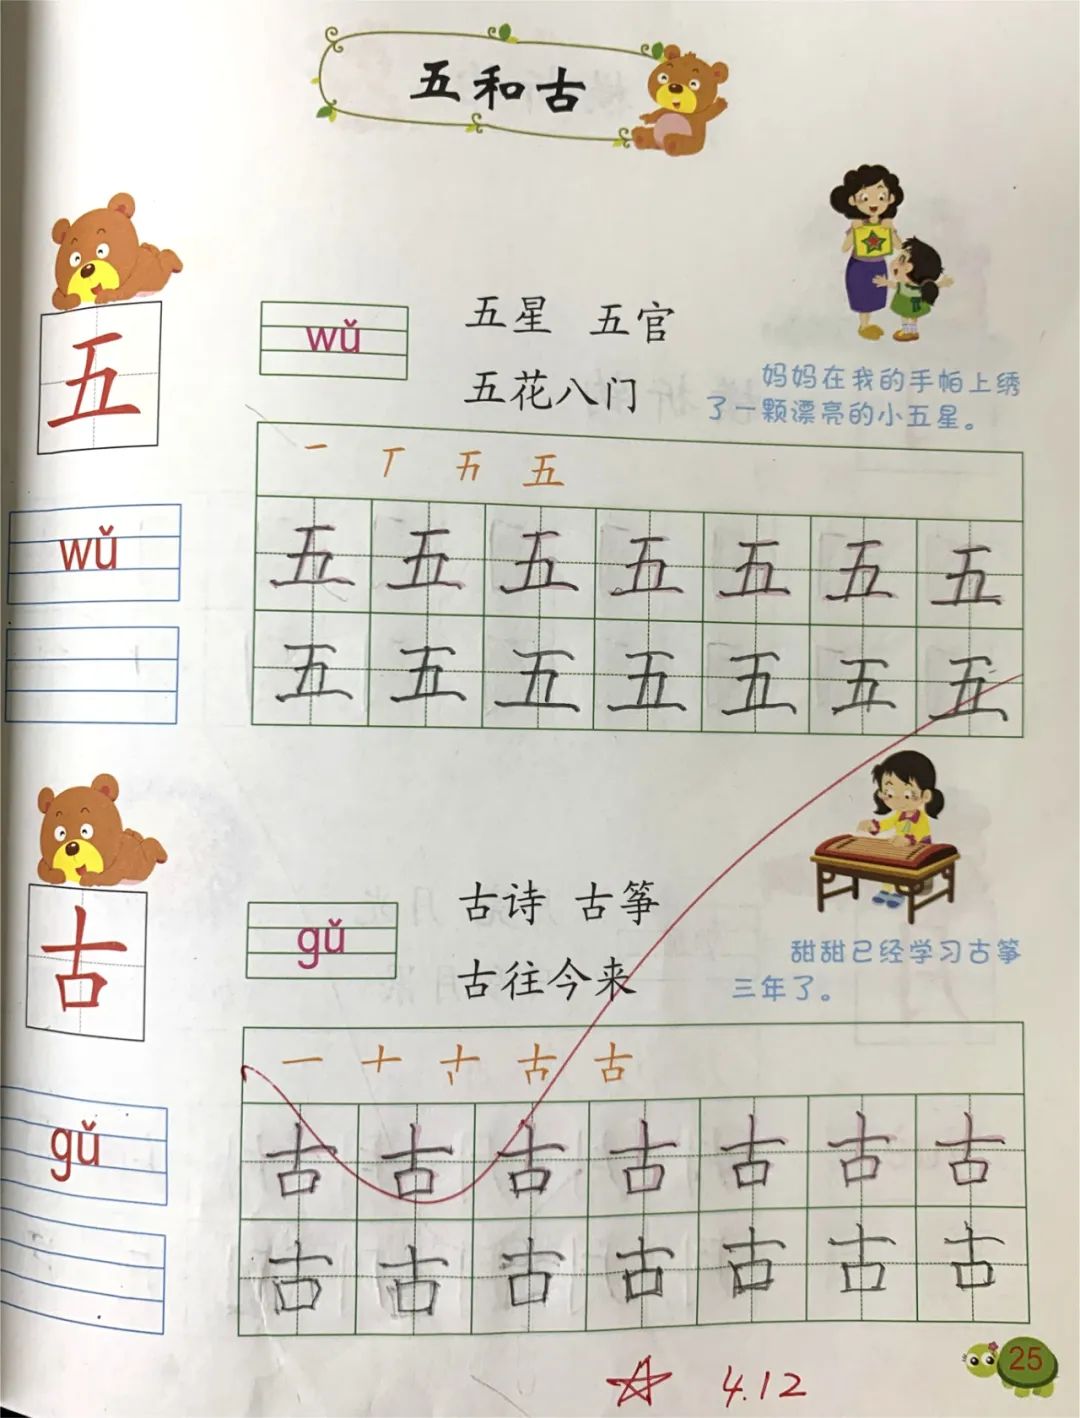 五和古
五
wǔ
五星 五官
五花八门
妈妈在我的手帕上绣
了一颗漂亮的小五星。
wǔ
一 丆 五
五 五 五 五 五 五 五
五 五 五 五 五 五 五
古
gǔ
古诗 古筝
古往今来
甜甜已经学习古筝
三年了。
gǔ
一 十 古
古 古 古 古 古 古 古
古 古 古 古 古 古 古
4.12
25